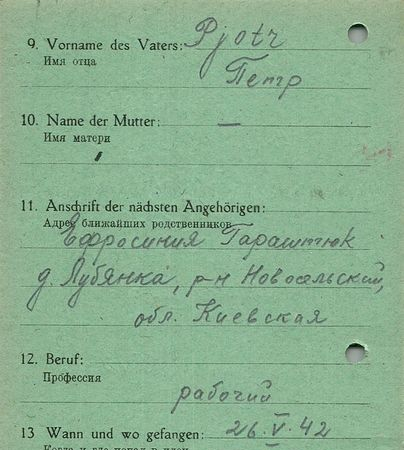 9. Vorname des Vaters: Pjotr
Имя отца
Петр
10. Name der Mutter: —
Имя матери
11. Anschrift der nächsten Angehörigen:
Адрес ближайших родственников
Ефросиния Гараштюк
д. Лубянка, р-н Новосельский,
обл. Киевская
12. Beruf:
Профессия
рабочий
13 Wann und wo gefangen: 26. V. 42
Когда и где попал в плен